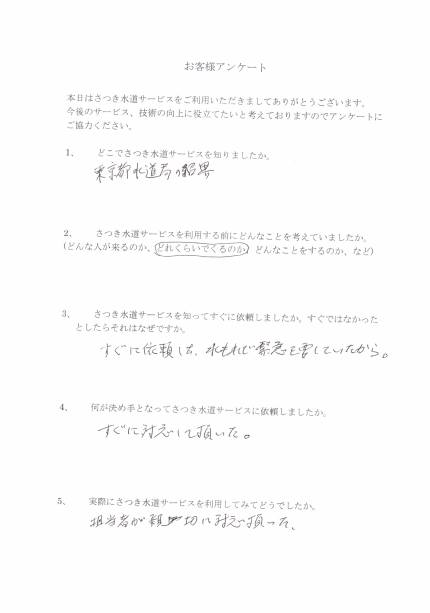 お客様アンケート
本日はさつき水道サービスをご利用いただきましてありがとうございます。
今後のサービス、技術の向上に役立てたいと考えておりますのでアンケートに
ご協力ください。
1、 どこでさつき水道サービスを知りましたか。
東京都水道局の紹界
2、 さつき水道サービスを利用する前にどんなことを考えていましたか。
(どんな人が来るのか、どれくらいでくるのか、どんなことをするのか、など)
3、 さつき水道サービスを知ってすぐに依頼しましたか。すぐではなかった
としたらそれはなぜですか。
すぐに依頼した、水もれで緊急を要していたから。
4、 何が決め手となってさつき水道サービスに依頼しましたか。
すぐに対応して頂いた。
5、 実際にさつき水道サービスを利用してみてどうでしたか。
担当者が親切に対応頂った、